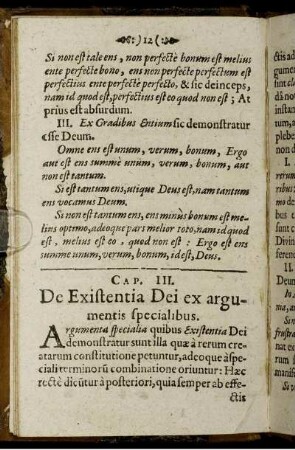 12
Si non est tale ens, non perfectè bonum est melius
ente perfecte bono, ens non perfecte perfectum est
perfectius ente perfectè perfecto, & sic deinceps,
nam id quod est, perfectius est eo quod non est; At
prius est absurdum.
III. Ex Gradibus Entium sic demonstratur
esse Deum.
Omne ens est unum, verum, bonum, Ergo
aut est ens summè unum, verum, bonum, aut
non est tantum.
Si est tantum ens, utique Deus est, nam tantum
ens vocamus Deum.
Si non est tantum ens, ens minùs bonum est me-
lius optimo, adeoque pars melior toto, nam id quod
est, melius est eo, quod non est: Ergo est ens
summe unum, verum, bonum, id est, Deus.
CAP. III.
De Existentia Dei ex argu-
mentis specialibus.
Argumenta specialia quibus Existentia Dei
demonstratur sunt illa quæ à rerum cre-
atarum constitutione petuntur, adeoque à spe-
ciali terminorũ combinatione oriuntur: Hæc
rectè dicũtur à posteriori, quia semper ab effe-
ctis